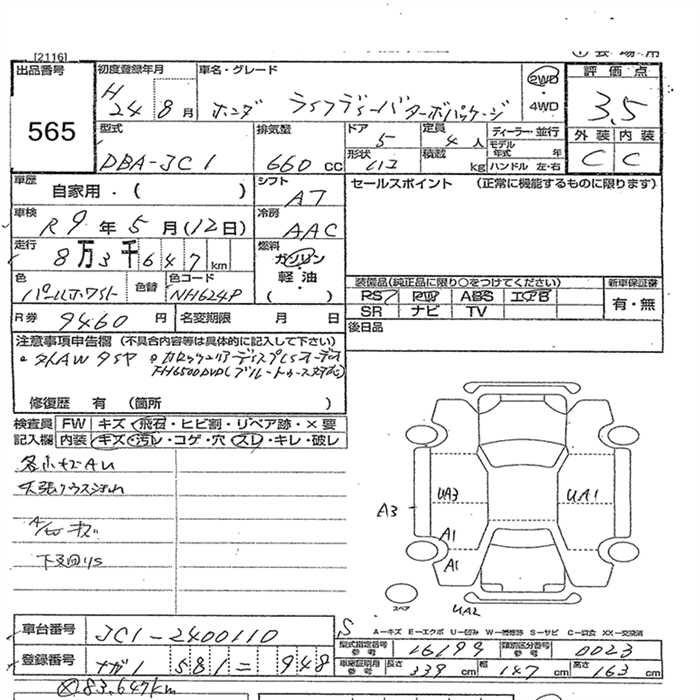 [2116]
出品番号
565
初度登録年月
H 24年 8月
車名・グレード
ホンダ ライフディーバターボパッケージ
2WD
・
4WD
評価点
3.5
外装 内装
C C
型式
DBA-JC1
排気量
660 cc
ドア
5
定員
4人
形状
積載
kg
ディーラー・並行
モデル年式 年
ハンドル 左・右
車歴
自家用・( )
シフト
AT
セールスポイント (正常に機能するものに限ります)
車検
R 9年 5月 (12日)
冷房
AAC
走行
8万3千647km
燃料
ガソリン
軽・油
( )
色
パールホワイト
色替
色コード
NH624P
装備品(純正品に限り○をつけてください)
新車保証書
PS PW ABS エアB
SR ナビ TV
有・無
R券
9460円
名変期限 月 日
後日品
注意事項申告欄 (不具合内容等は具体的に記入して下さい)
FH6500DVD(ブルートゥース対応)
修復歴 有 (箇所 )
検査員
記入欄
FW キズ・飛石・ヒビ割・リペア跡・×要
内装 キズ・汚レ・コゲ・穴・スレ・キレ・破レ
各小キズAU
下回りS
A3
UA3
UA1
A1
A1
UA2
スペア
S
A－キズ E－エクボ U－凹み W－補修跡 S－サビ C－腐食 XX－交換済
車台番号
JC1-2400110
型式指定番号
参考
16199
類別区分番号
参考
0023
登録番号
581 = 948
車庫証明用
参考
長さ 339cm
幅 147cm
高さ 163cm
83,647km